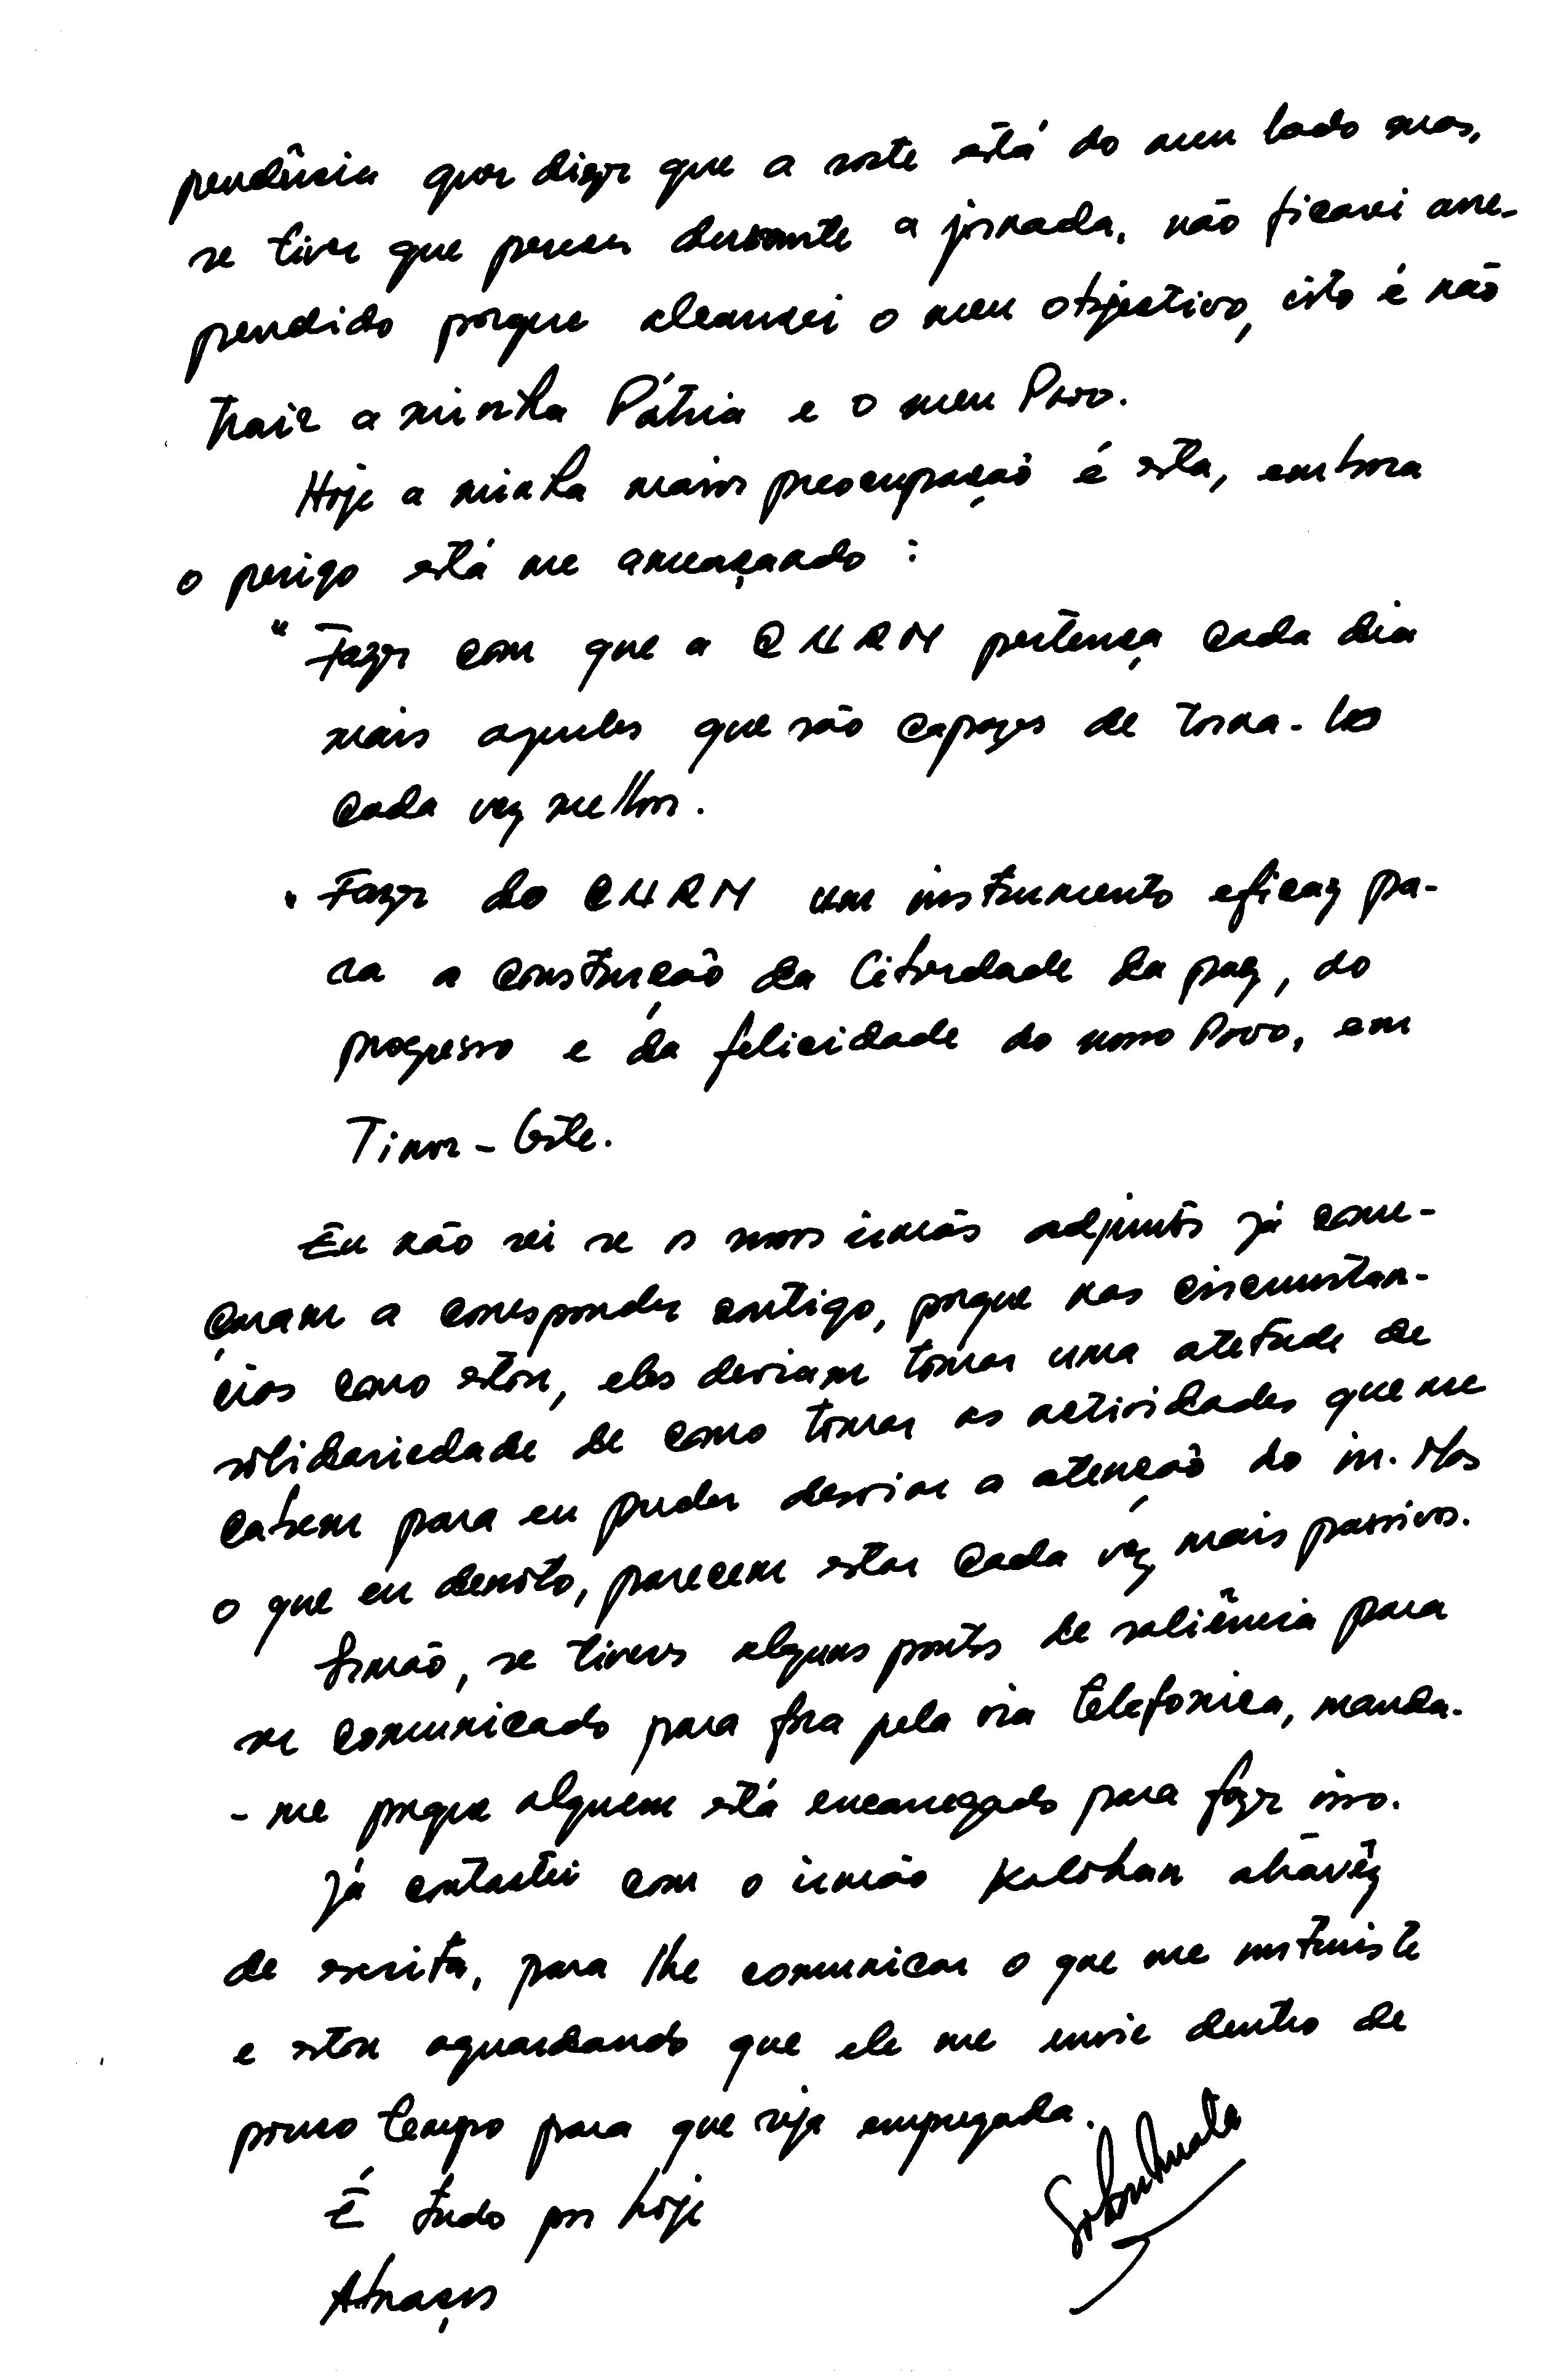 pendência quer dizer que a sorte está do meu lado mas,
se tiver que perecer durante a jornada, não ficarei arre-
pendido porque alcancei o meu objectivo, isto é não
trair a minha Pátria e o meu Povo.
Hoje a minha maior preocupação é esta, embora
o perigo está me ameaçando :
" Fazer com que a CNRM pertença cada dia
mais aqueles que são capazes de torna-los
cada vez melhor.
" Fazer do CNRM um instrumento eficaz pa-
ra a construção da liberdade da paz, do
progresso e da felicidade do nosso Povo, em
Timor-Leste.
Eu não sei se os meus irmãos adjuntos já come-
çaram a corresponder contigo, porque nas circunstan-
cias como estou, eles deviam tomar uma atetude de
solidariedade de como tomar as actividades que me
cabem para eu puder desviar a atenção do in. Mas
o que eu denoto, parecem estar cada vêz mais passivos.
Irmão, se tiveres alguns pontos de saliência para
ser comunicado para fora pela via telefonica, manda-
-me porque alguem está encarregado para fazer isso.
Já contactei com o irmão Kalohan atravêz
de escrita, para lhe comunicar o que me instruiste
e estou aguardando que ele me envie dentro de
pouco tempo para que seja empregada.
É tudo por hoje
Abraços